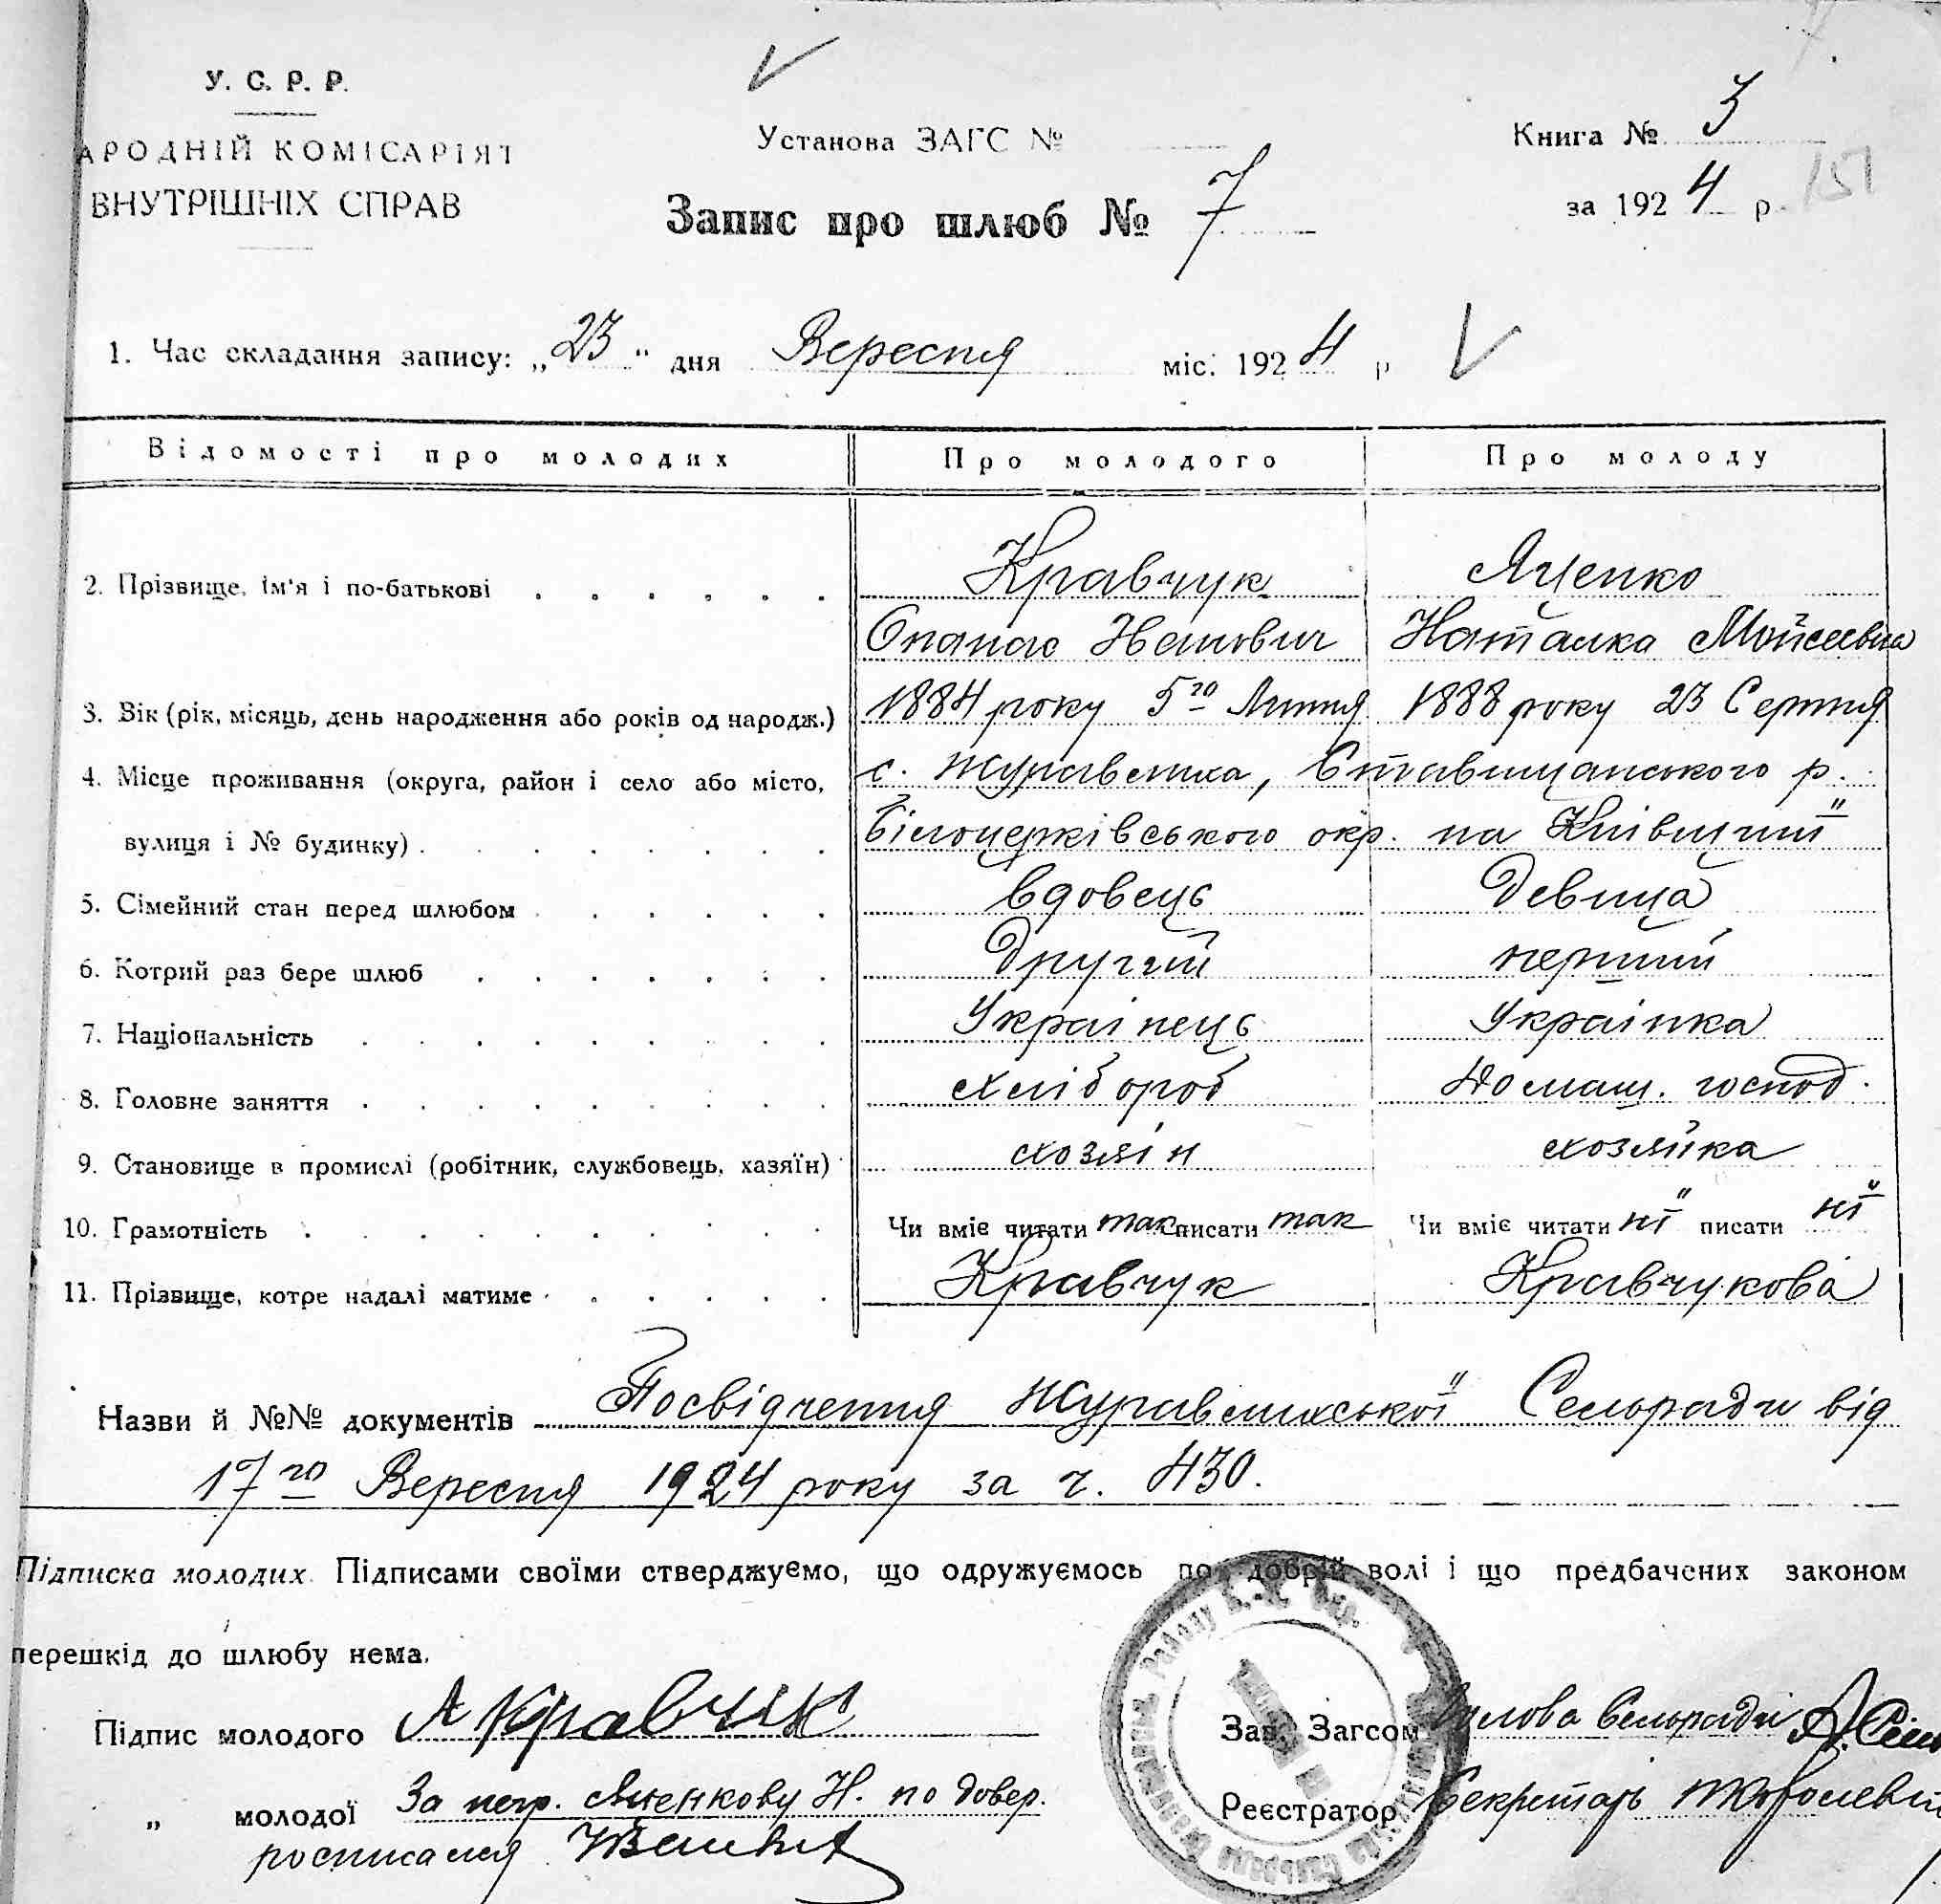 У. С. Р. Р.
АРОДНІЙ КОМІСАРІЯТ
ВНУТРІШНІХ СПРАВ
Установа ЗАГС №
Книга № 3
за 1924 р. 151
Запис про шлюб № 7
1. Час складання запису: „23“ дня Вересня міс. 1924 р
Відомості про молодих Про молодого Про молоду
2. Прізвище, ім'я і по-батькові Кравчук Яценко
Опанас Іванович Наталка Мойсеевна
3. Вік (рік, місяць, день народження або років од народж.) 1884 року 5го Липня 1888 року 23 Серпня
4. Місце проживання (округа, район і село або місто, с. Журавлиха, Ставищанського р.
вулиця і № будинку) Білоцерківського окр. на Київщині
5. Сімейний стан перед шлюбом вдовець Девица
6. Котрий раз бере шлюб Другий перший
7. Національність Украінець Украінка
8. Головне заняття хлібороб Домаш. господ.
9. Становище в промислі (робітник, службовець, хазяїн) хозяін хозяйка
10. Грамотність Чи вміє читати так писати так Чи вміє читати ні писати ні
11. Прізвище, котре надалі матиме Кравчук Кравчукова
Назви й №№ документів Посвідчення Журавлихської Сельради від
17го Вересня 1924 року за ч. 430.
Підписка молодих. Підписами своїми стверджуємо, що одружуємось по добрій волі і що предбачених законом
перешкід до шлюбу нема.
Підпис молодого А Кравчук
Зав. Загсом Голова Сельради
„ молодої За негр. Яценкову Н. по довер.
росписался
Реєстратор Секретарь